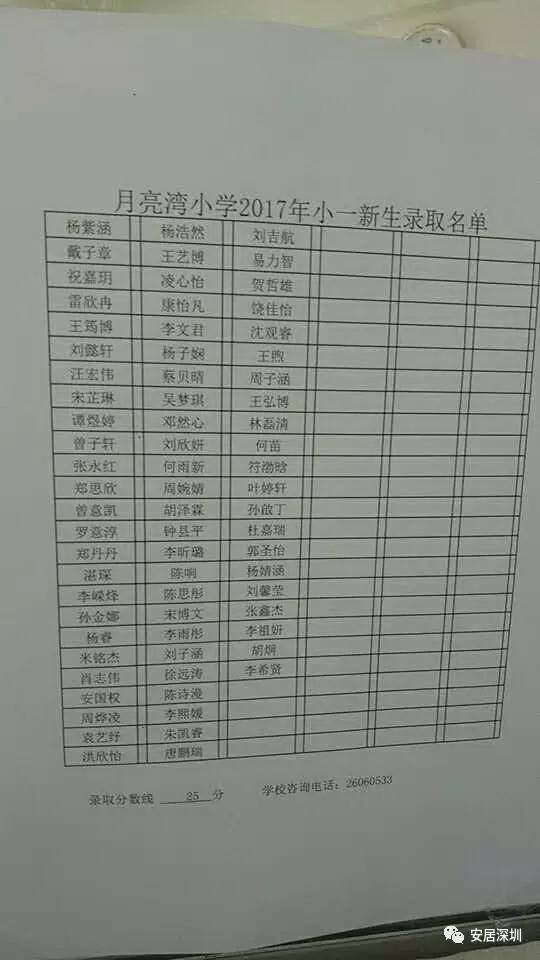 月亮湾小学2017年小一新生录取名单
杨紫涵 杨浩然 刘吉航
戴子章 王艺博 易力智
祝嘉玥 凌心怡 贺哲雄
雷欣冉 康怡凡 饶佳怡
王筠博 李文君 沈观睿
刘懿轩 杨子娴 王煦
汪宏伟 蔡贝晴 周子涵
宋芷琳 吴梦琪 王弘博
谭煜婷 邓然心 林磊清
曾子轩 刘欣妍 何苗
张永红 何雨新 符渤晗
郑思欣 周婉婧 叶婷轩
曾意凯 胡泽霖 孙啟丁
罗意淳 钟县平 杜嘉瑞
郑丹丹 李昕璐 郭圣怡
湛琛 陈响 杨婧涵
李嵘烽 陈思彤 刘馨莹
孙金娜 宋博文 张鑫杰
杨睿 李雨彤 李祖妍
米铭杰 刘子涵 胡炯
肖志伟 徐远涛 李希贤
安国权 陈诗漫
周烨凌 李熙媛
袁艺纾 朱凯睿
洪欣怡 唐鹏瑞
录取分数线 25 分 学校咨询电话：26060533
安居深圳